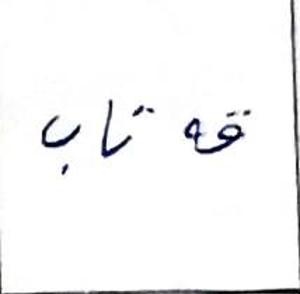 قه تاب